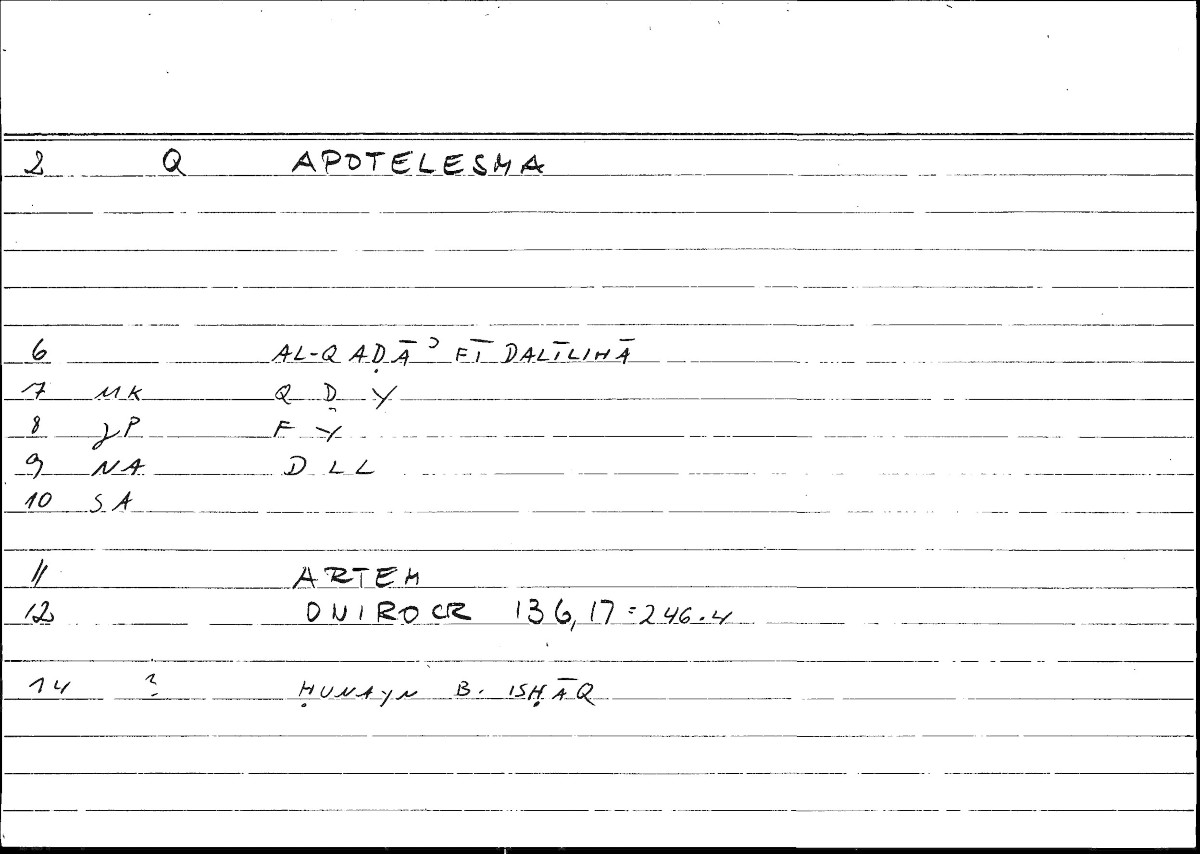 2 Q APOTELESMA
6 AL-QAḌĀʾ FĪ DALĪLIHĀ
7 MK Q Ḍ Y
8 JP F Y
9 NA D L L
10 SA
11 ARTEM
12 ONIROCR 136,17=246.4
14 ? ḤUNAYN B. ISḤĀQ